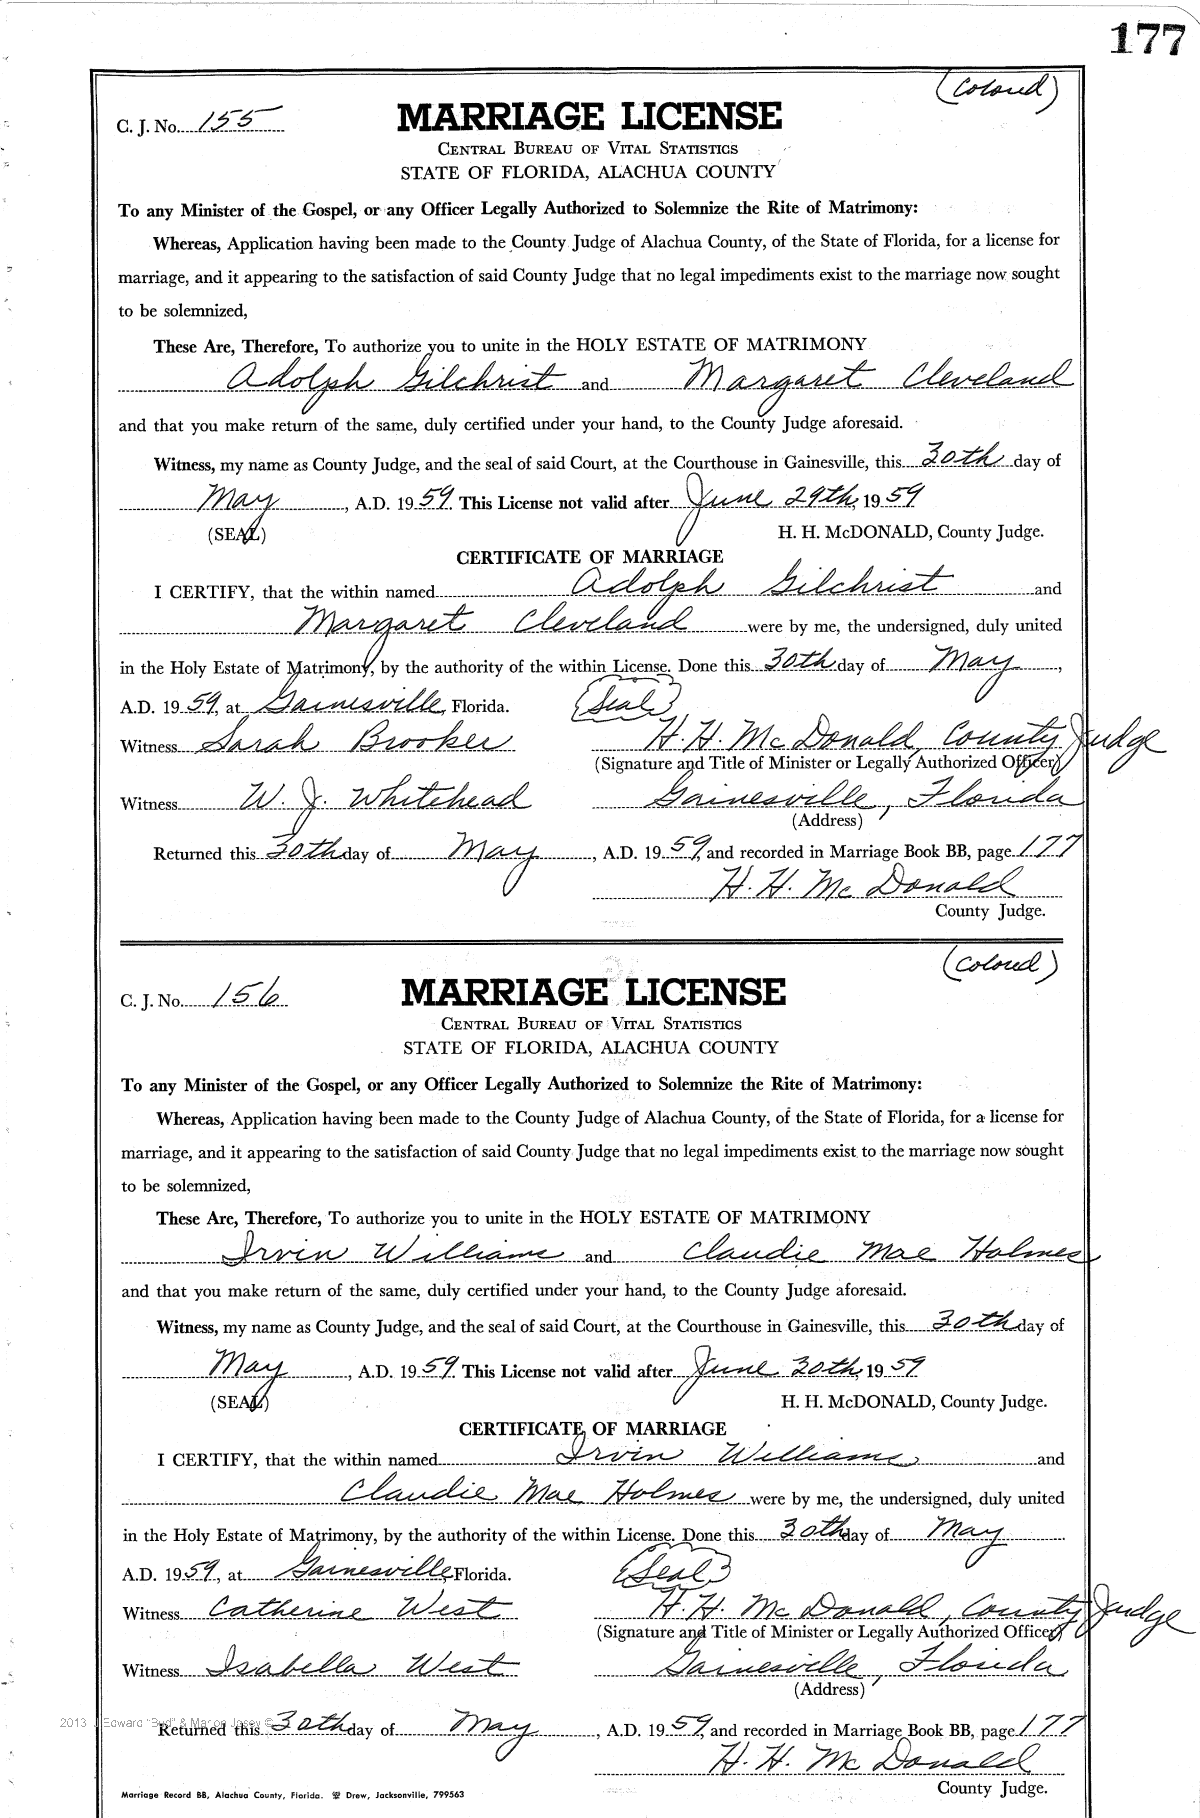 177
(Colored)
C. J. No. 155
MARRIAGE LICENSE
CENTRAL BUREAU OF VITAL STATISTICS
STATE OF FLORIDA, ALACHUA COUNTY
To any Minister of the Gospel, or any Officer Legally Authorized to Solemnize the Rite of Matrimony:
Whereas, Application having been made to the County Judge of Alachua County, of the State of Florida, for a license for
marriage, and it appearing to the satisfaction of said County Judge that no legal impediments exist to the marriage now sought
to be solemnized,
These Are, Therefore, To authorize you to unite in the HOLY ESTATE OF MATRIMONY
Adolph Gilchrist and Margaret Cleveland
and that you make return of the same, duly certified under your hand, to the County Judge aforesaid.
Witness, my name as County Judge, and the seal of said Court, at the Courthouse in Gainesville, this 30th day of
May, A.D. 1959. This License not valid after June 29th, 1959
(SEAL) H. H. McDONALD, County Judge.
CERTIFICATE OF MARRIAGE
I CERTIFY, that the within named Adolph Gilchrist and
Margaret Cleveland were by me, the undersigned, duly united
in the Holy Estate of Matrimony, by the authority of the within License. Done this 30th day of May,
A.D. 1959, at Gainesville, Florida. (Seal)
Witness Sarah Brooker H. H. McDonald, County Judge
(Signature and Title of Minister or Legally Authorized Officer)
Witness W. J. Whitehead Gainesville, Florida
(Address)
Returned this 30th day of May, A.D. 1959, and recorded in Marriage Book BB, page 177
H. H. McDonald
County Judge.
(Colored)
C. J. No. 156
MARRIAGE LICENSE
CENTRAL BUREAU OF VITAL STATISTICS
STATE OF FLORIDA, ALACHUA COUNTY
To any Minister of the Gospel, or any Officer Legally Authorized to Solemnize the Rite of Matrimony:
Whereas, Application having been made to the County Judge of Alachua County, of the State of Florida, for a license for
marriage, and it appearing to the satisfaction of said County Judge that no legal impediments exist to the marriage now sought
to be solemnized,
These Are, Therefore, To authorize you to unite in the HOLY ESTATE OF MATRIMONY
Irvin Williams and Claudie Mae Holmes
and that you make return of the same, duly certified under your hand, to the County Judge aforesaid.
Witness, my name as County Judge, and the seal of said Court, at the Courthouse in Gainesville, this 30th day of
May, A.D. 1959. This License not valid after June 30th, 1959
(SEAL) H. H. McDONALD, County Judge.
CERTIFICATE OF MARRIAGE
I CERTIFY, that the within named Irvin Williams and
Claudie Mae Holmes were by me, the undersigned, duly united
in the Holy Estate of Matrimony, by the authority of the within License. Done this 30th day of May
A.D. 1959, at Gainesville, Florida. (Seal)
Witness Catherine West H. H. McDonald, County Judge
(Signature and Title of Minister or Legally Authorized Officer)
Witness Isabella West Gainesville, Florida
(Address)
2013 J Edward "Bud" & Marion Jasey ©
Returned this 30th day of May, A.D. 1959, and recorded in Marriage Book BB, page 177
H. H. McDonald
County Judge.
Marriage Record BB, Alachua County, Florida. Drew, Jacksonville, 799563